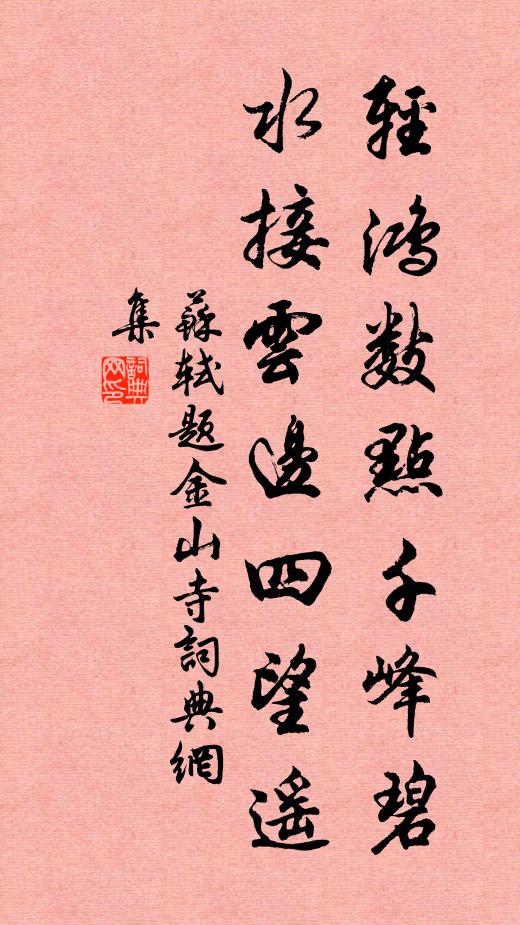 輕鴻數點千峰碧
水接雲邊四望遥
蘇軾题金山寺詞典網
集
詞典
网印